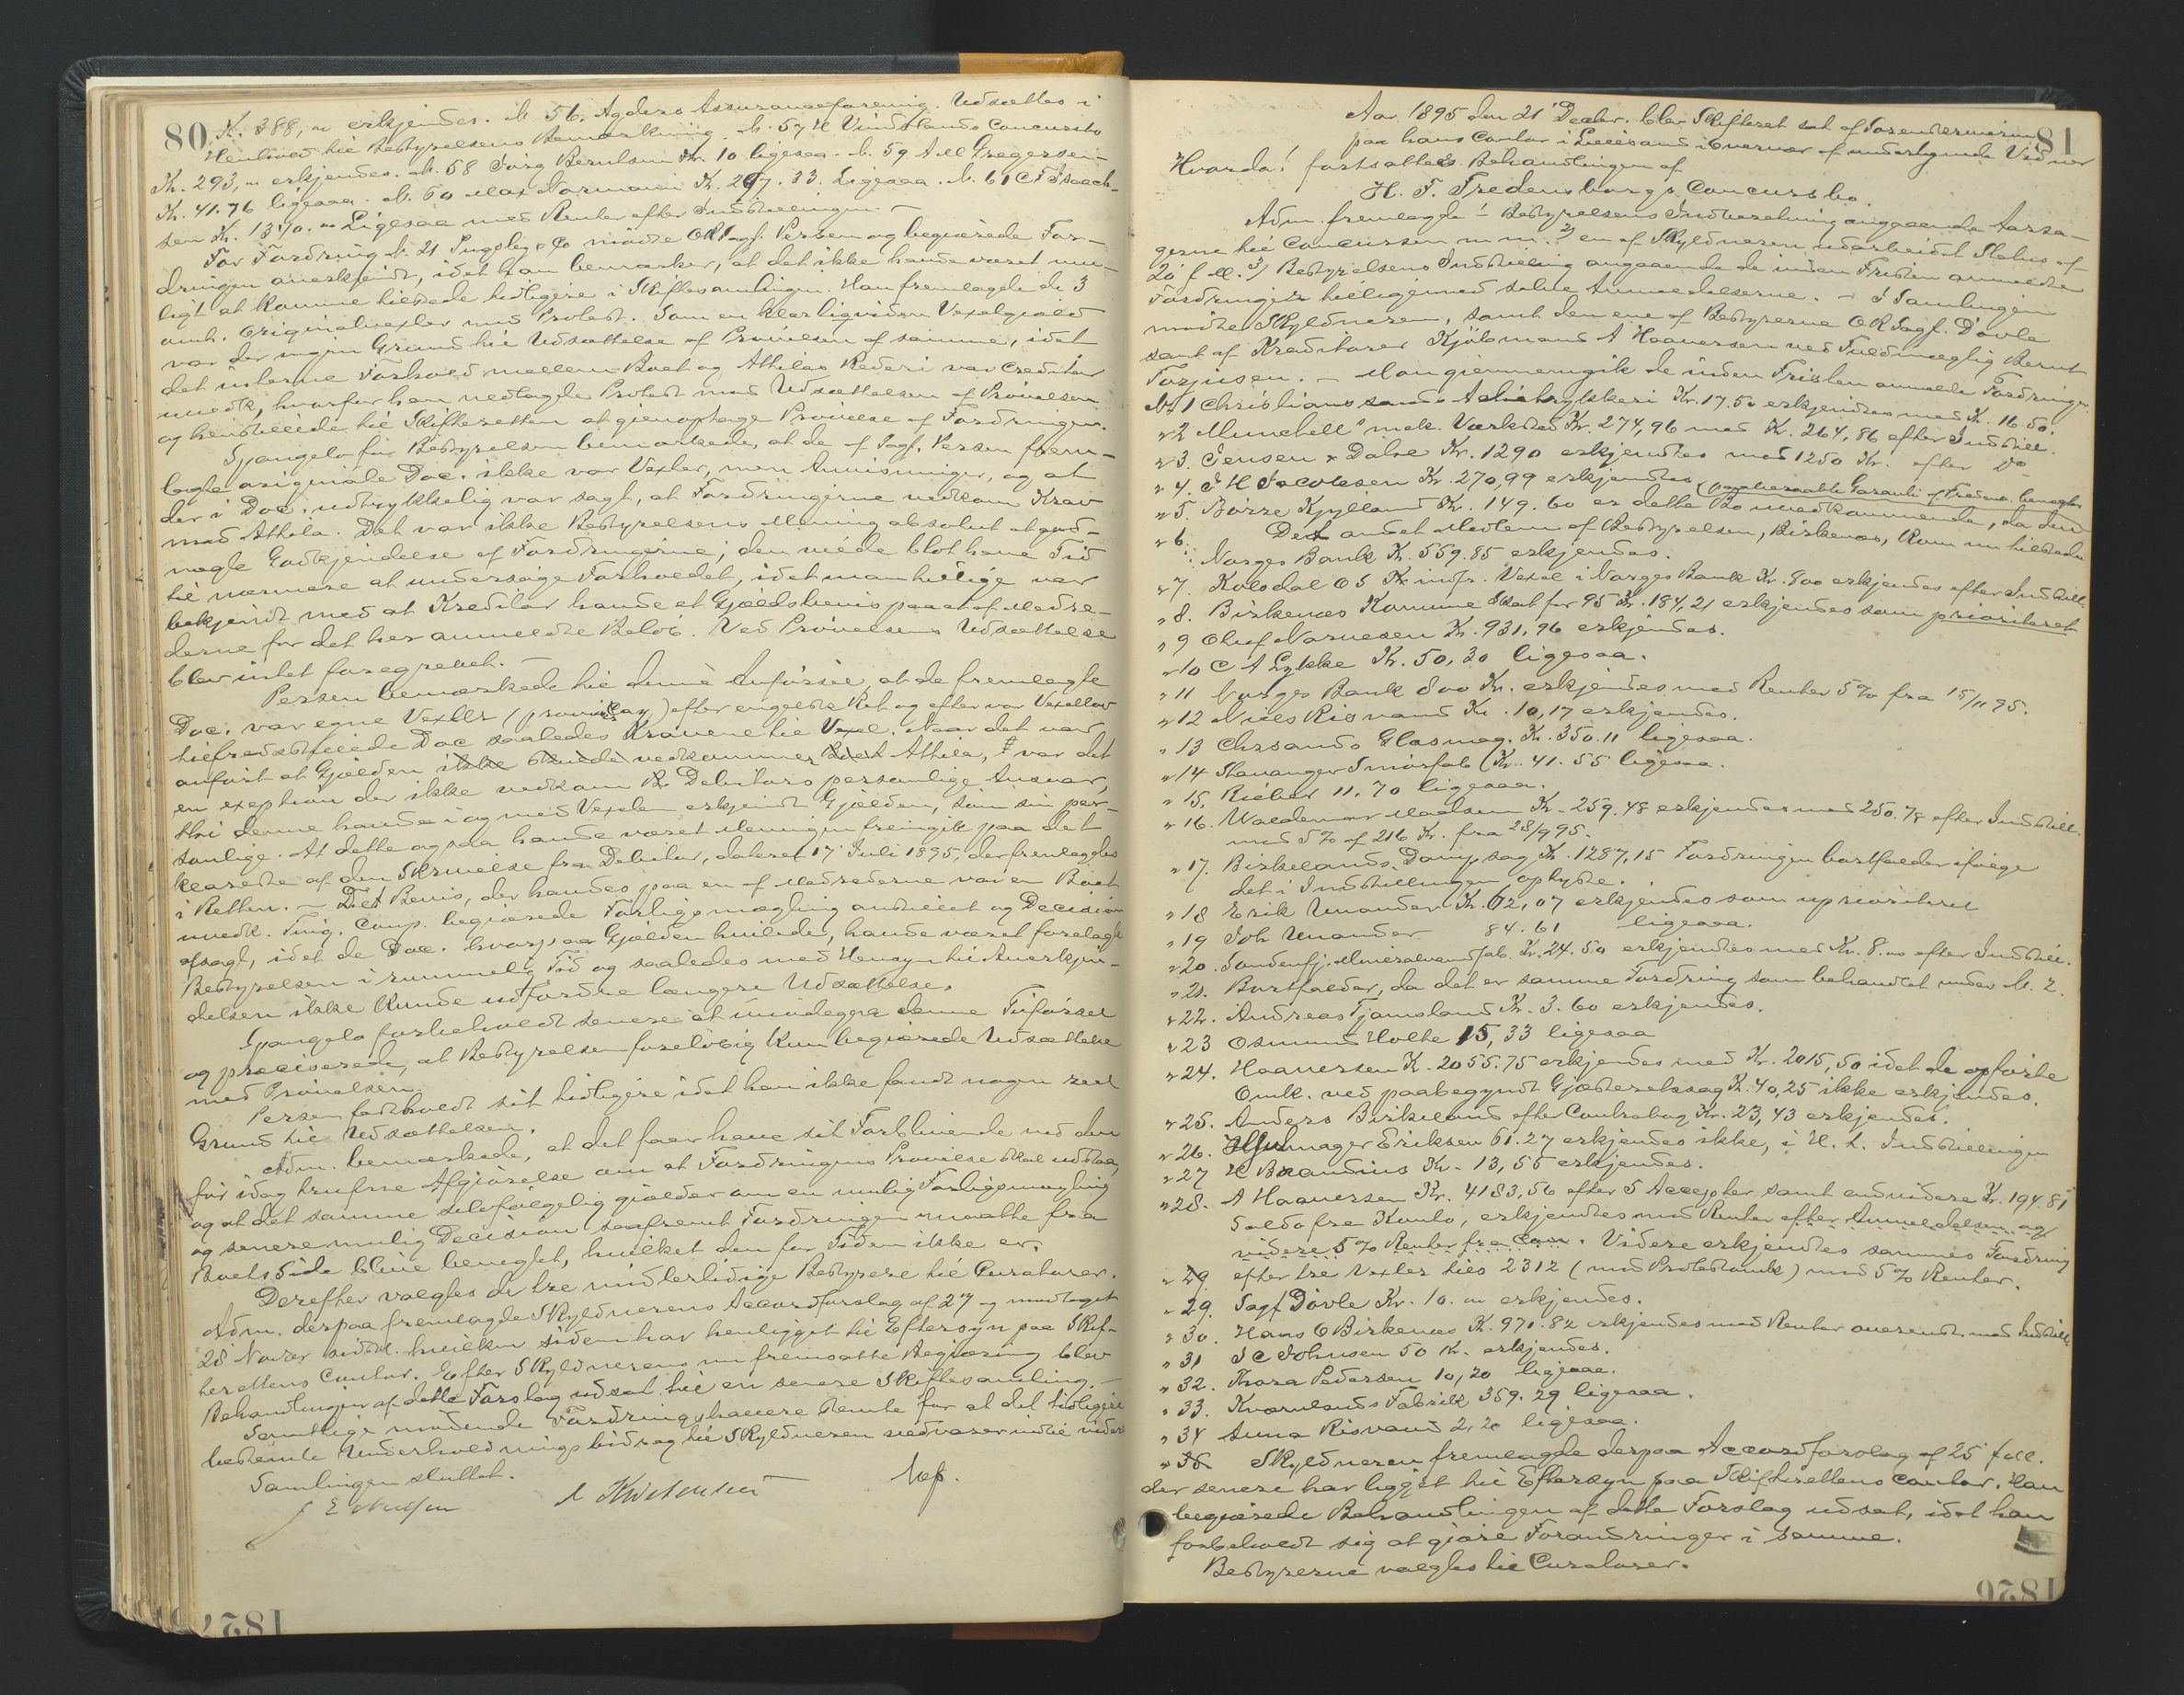 80
K. 388, " erkjendes. N. 56. Agders Assuranceforening. Udsættes i
Henhold til Bestyrelsens Bemærkning. N. 57 H Vindslands Concursbo
Kr. 293, " erkjendes. N. 58 Jørg Berntsen Kr. 10 ligesaa. N. 59 A M Gregersen
Kr. 41.76 ligesaa. N. 60 Max Normann K. 297.33. Ligesaa. N. 61 C F Isach-
sen K. 1370. " Ligesaa med Renter efter Indstillingen. —
For Fordring N. 21 Pugsley & Co mødte ORSagf. Persen og begjærede For-
dringen anerkjendt, idet han bemærker, at det ikke havde været mu-
ligt at komme tilstede tidligere i Skiftesamlingen. Han fremlagde de 3
omh. Originalvexler med Protest. Som en klar liqvidem Vexelgjæld
var der ingen Grund til Udsættelse af Prøvelsen af samme, idet
det interne Forhold mellem Boet og Attilas Rederi var Creditor
uvedk, hvorfor han nedlagde Protest mod Udsættelsen af Prøvelsen
og henstillede til Skifteretten at gjenoptage Prøvelse af Fordringen.
Spangelo for Bestyrelsen bemærkede, at de af Sagf. Persen frem-
lagte originale Doc. ikke var Vexler, men Anvisninger, og at
der i Doc. udtrykkelig var sagt, at Fordringerne vedkom Krav
mod Athila. Det var ikke Bestyrelsens Mening absolut at god-
nægte Godkjendelse af Fordringerne; den vilde blot have Tid
til nærmere at undersøge Forholdet, idet man tillige var
bekjendt med at Kreditor havde et Gjældsbevis paa et af Medre-
derne for det her anmeldte Beløb. Ved Prøvelsens Udsættelse
blev intet foregrebet. —
Persen bemærkede til denne Anførsel, at de fremlagte
Doc. var egne Vexler (promissory) efter engelsk Ret og efter vor Vexellov
tilfredsstillede Doc saaledes Kravene til Vexel. Naar det var
anført at Gjælden ikke skulde vedkommer Attila, var det
en exeption der ikke vedkom Debitors personlige Ansvar,
thi denne havde i og med Vexelen erkjendt Gjælden, som sin per-
sonlige. At dette ogsaa havde været Meningen fremgik paa det
klareste af den Skrivelse fra Debitor, dateret 17' Juli 1895, der fremlagdes
i Retten. — Det Bevis, der handes paa en af Medrederne var en Boet
uvedk. Ting. Comp. begjærede Forligsmægling anstillet og Decision
afsagt, idet de Doc. hvorpaa Gjælden hvilede, havde været forelagt
Bestyrelsen i rummelig Tid og saaledes med Hensyn til Anerkjen-
delsen ikke kunde udfordre længere Udsættelse.
Spangelo forbeholdt senere at imødegaa denne Tilførsel
og præciserede, at Bestyrelsen foreløbig kun begjærede Udsættelse
med Prøvelsen.
Persen fastholdt sit tidligere idet han ikke fandt nogen reel
Grund til Udsættelsen.
Adm. bemærkede, at det faar have sit Forblivende ved den
før idag trufne Afgjørelse om at Fordringens Prøvelse skal udstaa,
og at det samme selvfølgelig gjælder om en mulig Forligsmægling
og senere mulig Decision saafremt Fordringen maatte fra
Boets Side blive benegtet, hvilket den for Tiden ikke er.
Derefter valgtes de tre midlertidige Bestyrere til Curatorer.
Adm. derpaa fremlagde Skyldnerens Accordforslag af 27 og modtaget
28' Novbr sidstl. hvilken siden har henligget til Eftersyn paa Skif-
terettens Contor. Efter Skyldnerens nu fremsatte Begjæring blev
Behandlingen af dette Forslag udsat til en senere Skiftesamling. —
Samtlige mødende Fordringshavere stemte for at det tidligere
bestemte Underholdningsbidrag til Skyldneren vedvarer indtil videre
Samlingen sluttet.
N Kristensen
81
Aar 1895 den 21' Decbr. blev Skifteret sat af Sorenskriveren
paa hans Contor i Lillesand i Overvær af underskrevne Vidner
Hvorda! fortsattes Behandlingen af
H. T. Fredensborgs Concursbo.
Adm. fremlagde 1 Bestyrelsens Indberetning angaaende Aarsa-
gerne til Concursen m m. 2) en af Skyldneren udarbeidet Status af
20' f. M. 3) Bestyrelsens Indstilling angaaende de inden Fristen anmeldte
Fordringer tilligemed selve Anmeldelserne. — I Samlingen
mødte Skyldneren, samt den ene af Bestyrerne ORSagf. Døvle
samt af Kreditorer Kjøbmand A Haaversen ved Fuldmægtig Bernt
Torjusen. — Man gjennemgik de inden Fristen anmeldte Fordringer.
N 1 Christianssands Actietrykkeri Kr. 17.50 erkjendtes med K. 16.50.
" 2 Munchells mek. Værksted Kr. 274,96 med Kr. 264,86 efter Indstill.
" 3. Jensen & Dahl Kr. 1290 erkjendtes med 1250 Kr. efter do
" 4. J H Jacobsen Kr. 270,99 erkjendtes.
" 5. Børre Kylland Kr. 149.60 er dette Bo uvedkommende, da den paaberaabte Garanti af Fredens. benegtes
" 6. Det andet Medlem af Bestyrelsen, Birkenæs, kom nu tilstede
: Norges Bank Kr. 559.85 erkjendes.
" 7. Kolsdal O S Kr. indfr. Vexel i Norges Bank Kr. 800 erkjendes efter Indstill.
" 8. Birkenæs Kommune Skat for 95 Kr. 184,21 erkjendes som prioriteret
" 9 Oluf Narvesen Kr. 931,96 erkjendes.
" 10 C A Lykke Kr. 50,30 ligesaa.
" 11 Norges Bank 800 Kr. erkjendes med Renter 5% fra 15/11 95.
" 12 Niels Risvand Kr. 10,17 erkjendes.
" 13 Chrsands Glasmag. K. 350.11 ligesaa.
" 14 Stavanger Smørfab Kr. 41.55 ligesaa.
" 15. Rieber 11.70 ligesaa.
" 16. Waldemar Madsen Kr. 259.48 erkjendes med 250.78 efter Indstill.
med 5% af 216 Kr. fra 28/9 95.
" 17. Birkelands Dampsag Kr. 1287,15 Fordringen bortfalder ifølge
det i Indstillingen oplyste.
" 18 Erik Unander Kr. 62,07 erkjendes som uprioriteret
" 19 Joh Unander 84.61 ligesaa.
" 20. Sandefj. Mineralvandfab. Kr. 24.50 erkjendtes med Kr. 8. " efter Indstill.
" 21. Bortfalder, da det er samme Fordring som behandlet under N. 2.
" 22. Andreas Tjamsland Kr. 3.60 erkjendes.
" 23 Osmund Holte 15,33 ligesaa
" 24. Haaversen K. 2055.75 erkjendes med Kr. 2015,50 idet de opførte
Omk. ved paabegyndt Gjæsteretssag K. 40,25 ikke erkjendes.
" 25. Anders Birkeland efter Contrabog Kr. 23,43 erkjendes.
" 26. Hjulmager Eriksen 61.27 erkjendes ikke, i H. t. Indstillingen
" 27 H Brandius Kr. 13,55 erkjendes.
" 28. A Haaversen Kr. 4183,56 efter 5 Accepter samt endvidere Kr. 194.81
Saldo fra Konto, erkjendtes med Renter efter Anmeldelsen og
videre 5% Renter fra Conc. Videre erkjendtes sammes Fordring
" 29 efter tre Vexler tils 2312 (med Protestomk) med 5% Renter.
" 29. Sagf Døvle Kr. 10. " erkjendes.
" 30. Hans O Birkenæs K. 971.82 erkjendes med Renter overensst. med Indstill.
" 31 J C Johnsen 50 Kr. erkjendes.
" 32. Thora Pedersen 10,20 ligesaa.
" 33. Kværnlands Fabrik 359.29 ligesaa.
" 34 Anna Risvand 2,20 ligesaa.
" 35 Skyldneren fremlagde derpaa Accordforslag af 25' f. M.
der senere har ligget til Eftersyn paa Skifterettens Contor. Han
begjærede Behandlingen af dette Forslag udsat, idet han
forbeholdt sig at gjøre Forandringer i samme.
Bestyrerne valgtes til Curatorer.